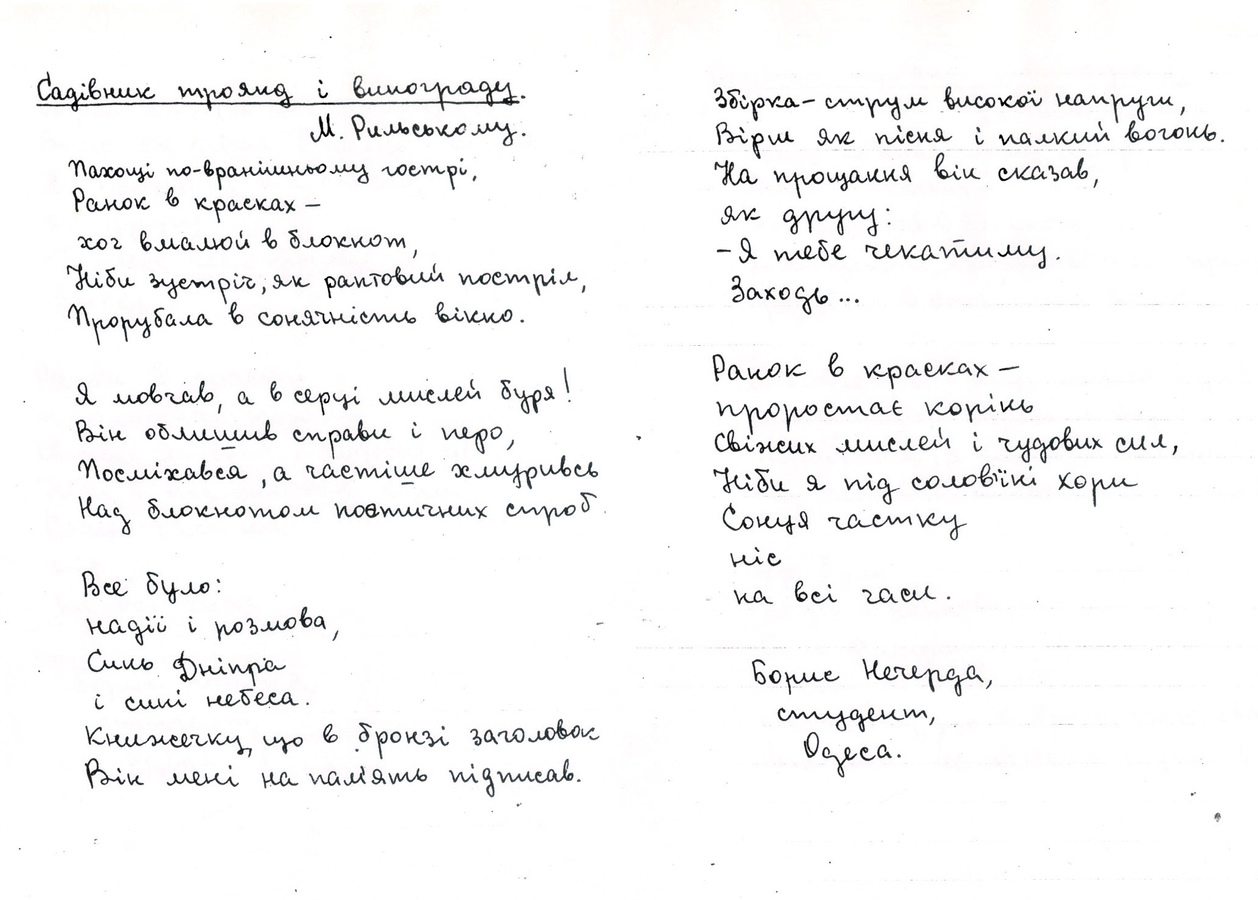 Садівник троянд і винограду.
М. Рильському.
Пахощі по-вранішньому гострі,
Ранок в красках –
хоч вмалюй в блокнот,
Ніби зустріч, як раптовий постріл,
Прорубала в сонячність вікно.
Я мовчав, а в серці мислей буря!
Він облишив справи і перо,
Посміхався, а частіше хмуривсь
Над блокнотом поетичних спроб.
Все було:
надії і розмова,
Синь Дніпра
і сині небеса.
Книжечку, що в бронзі заголовок
Він мені на пам'ять підписав.
Збірка – струм високої напруги,
Вірш як пісня і палкий вогонь.
На прощання він сказав,
як другу:
– Я тебе чекатиму.
Заходь...
Ранок в красках –
проростає корінь
Свіжих мислей і чудових сил,
Ніби я під солов'їні хори
Сонця частку
ніс
на всі часи.
Борис Нечерда,
студент,
Одеса.